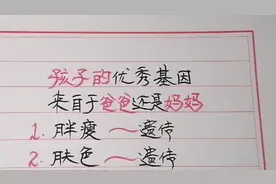 孩子的优秀基因
来自于爸爸还是妈妈
1. 胖瘦～遗传
2. 肤色～遗传